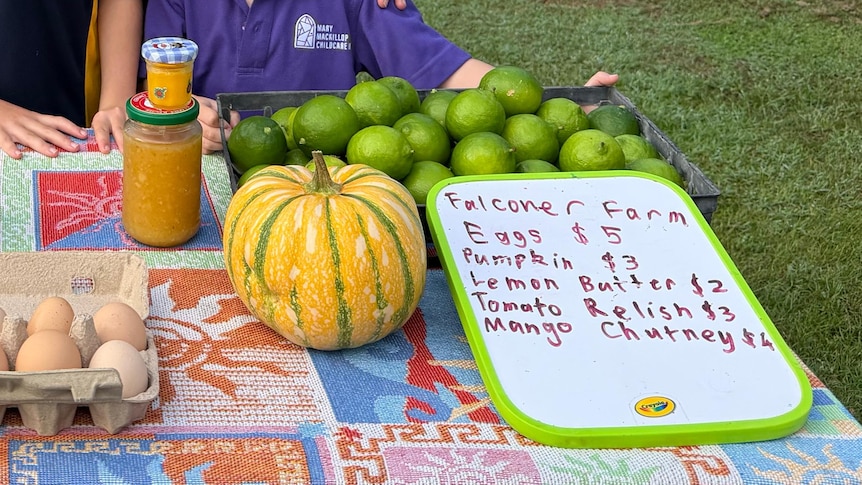 MARY
MACKILLOP
CHILDCARE
Falconer Farm
Eggs $5
Pumpkin $3
Lemon Butter $2
Tomato Relish $3
Mango Chutney $4
Crayola